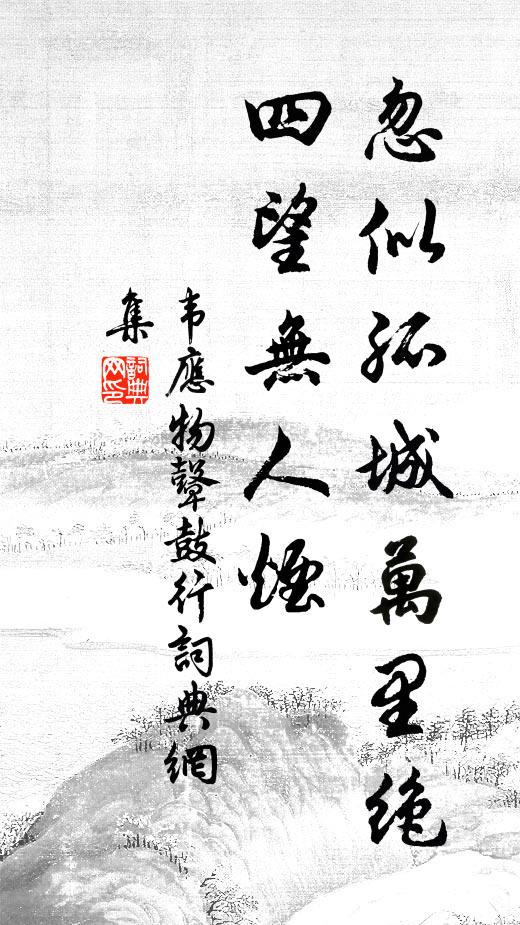 忽似孤城萬里絶
四望無人煙
韦應物鼙鼓行詞典網
集
詞典网印